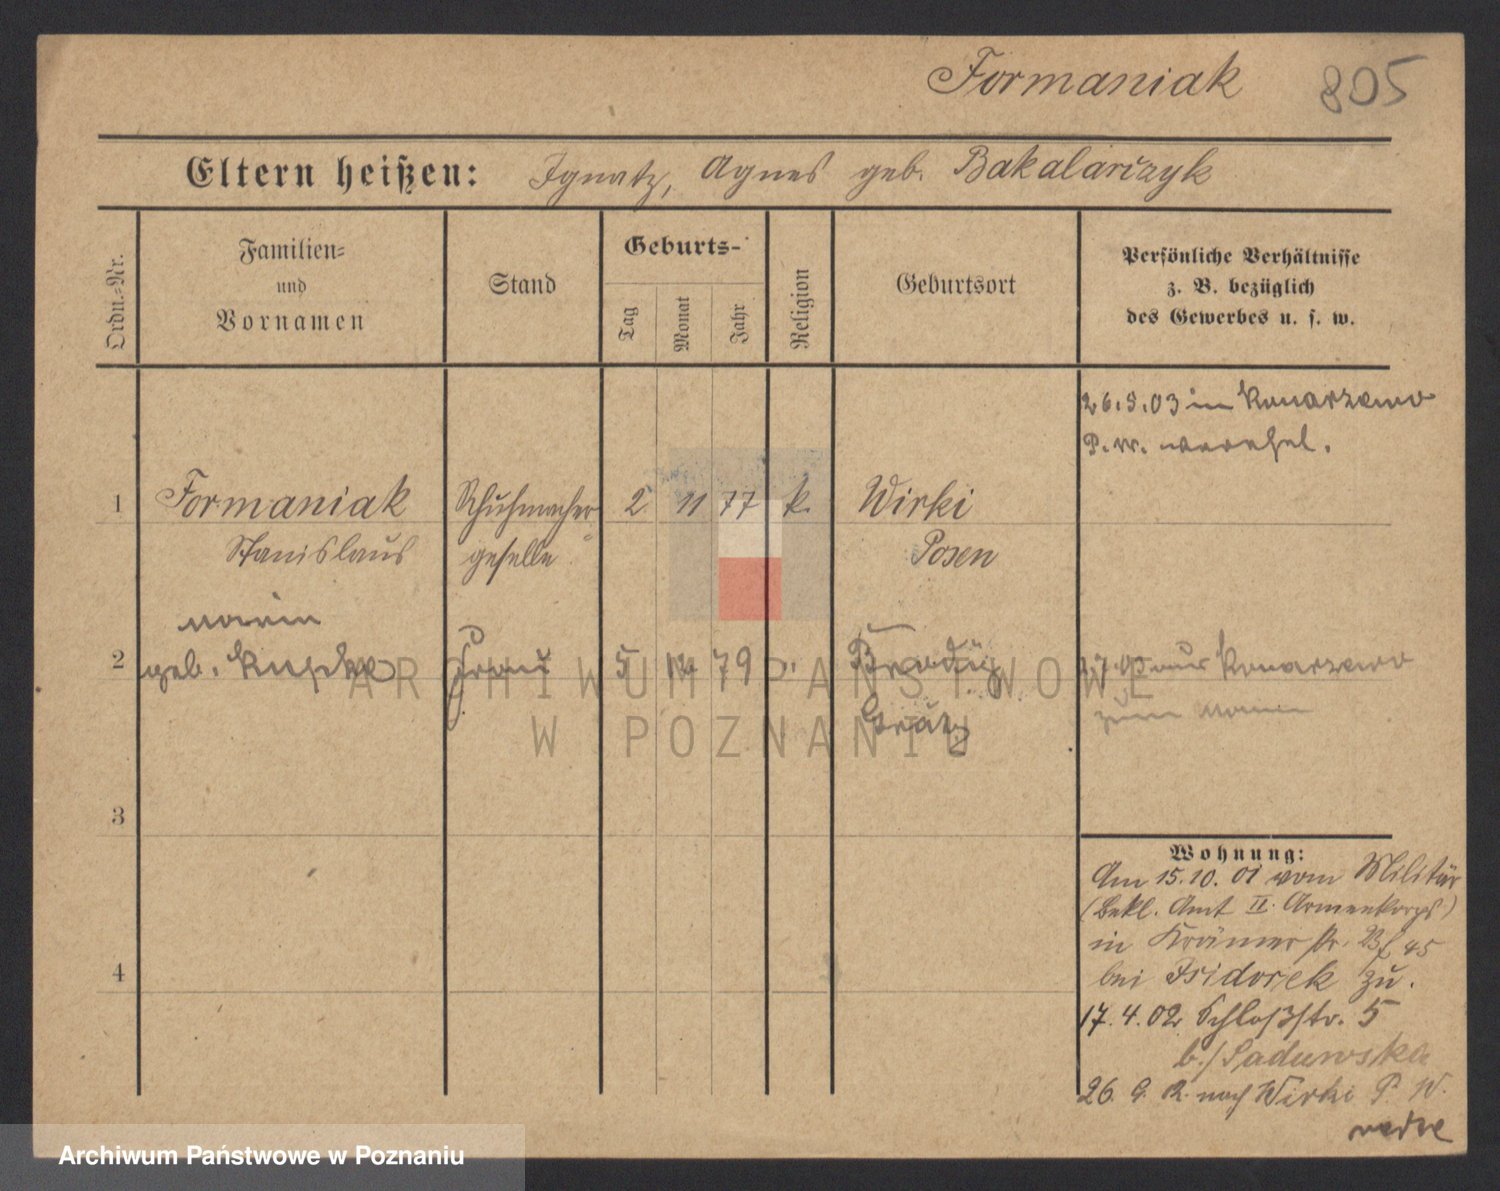 Formaniak 805
Eltern heißen: Ignatz, Agnes geb. Bakalarczyk
Ordn.=Nr.
Familien=
und
Vornamen
Stand
Geburts-
Tag
Monat
Jahr
Religion
Geburtsort
Persönliche Verhältnisse
z. B. bezüglich
des Gewerbes u. s. w.
26.5.03 in Konarzewo
P. W. verehel.
1 Formaniak Schuhmacher 2 11 77 k. Wirki
Stanislaus geselle Posen
2 geb. Frau 5 12 79 "
Grätz
aus Konarzewo
zum
ARCHIWUM PAŃSTWOWE
W POZNANIU
3
4
Wohnung:
Am 15.10.01 vom Militär
(Bekl. Amt II. Armeekorps)
in Krämerstr. 45
bei Isidorek zu.
17.4.02 Schloßstr. 5
b./Sadowska
26. 9. 02 nach Wirki P. W.
Archiwum Państwowe w Poznaniu